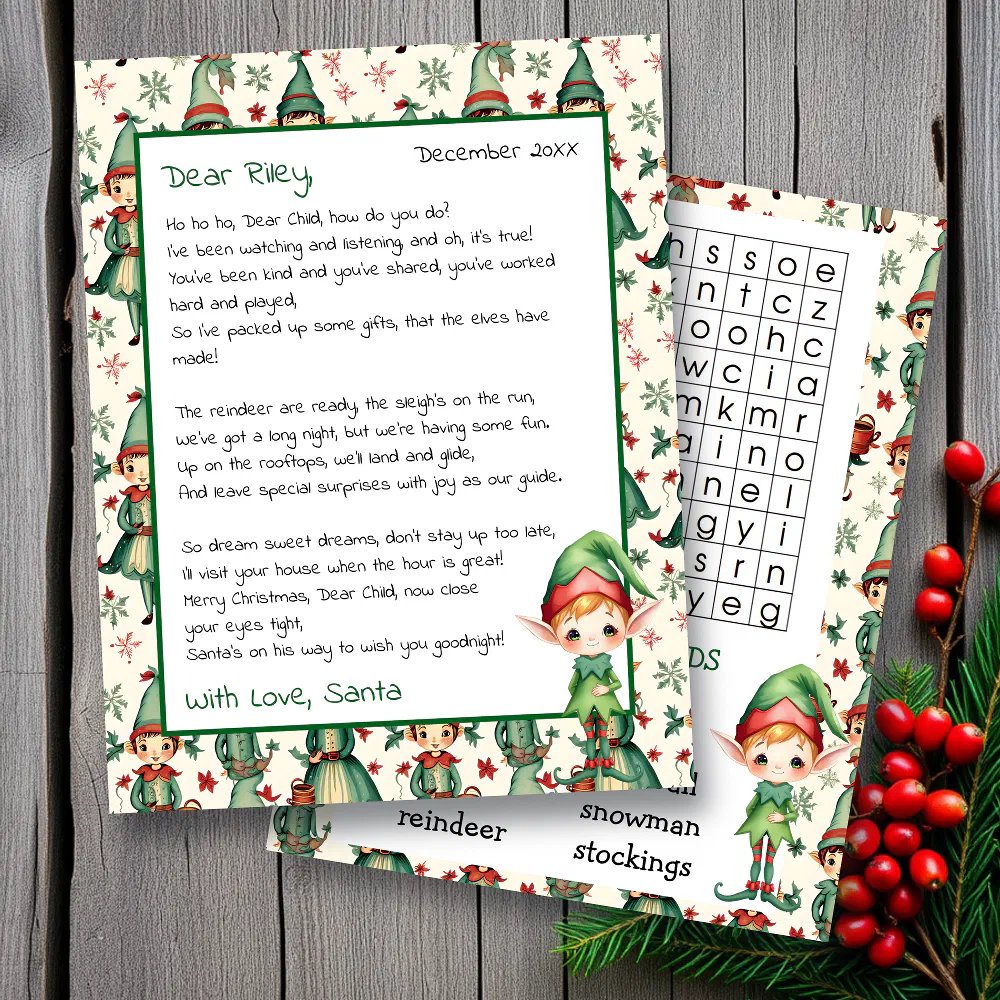 December 20XX
Dear Riley,
Ho ho ho, Dear Child, how do you do?
I've been watching and listening, and oh, it's true!
You've been kind and you've shared, you've worked
hard and played,
So I've packed up some gifts, that the elves have
made!
The reindeer are ready, the sleigh's on the run,
We've got a long night, but we're having some fun.
Up on the rooftops, we'll land and glide,
And leave special surprises with joy as our guide.
So dream sweet dreams, don't stay up too late,
I'll visit your house when the hour is great!
Merry Christmas, Dear Child, now close
your eyes tight,
Santa's on his way to wish you goodnight!
With Love, Santa
h s s o e
n t c z
o o h c
w c i a
m k m r
a i n o
n e l
g y i
s r n
y e g
DS
reindeer
snowman
stockings